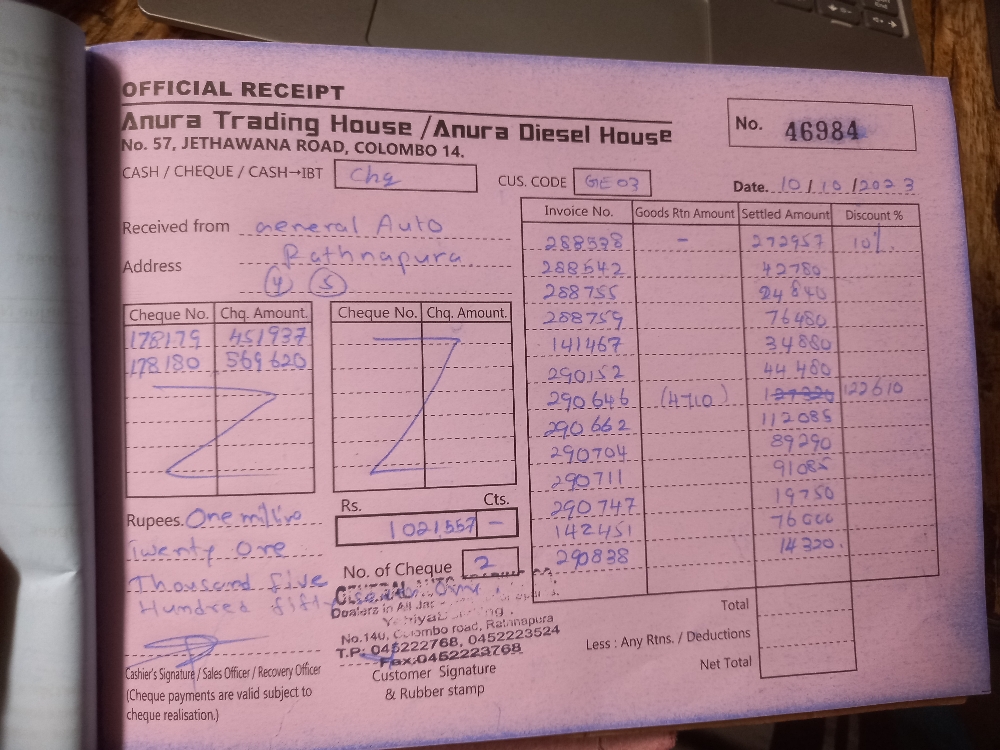 OFFICIAL RECEIPT
Anura Trading House / Anura Diesel House
No. 57, JETHAWANA ROAD, COLOMBO 14.
No. 46984
CASH / CHEQUE / CASH→IBT Chq
CUS. CODE GE 03
Date. 10 / 10 / 2023
Received from General Auto
Address Rathnapura
4 5
Cheque No. Chq. Amount.
178179 451937
178180 569620
Cheque No. Chq. Amount.
Invoice No. Goods Rtn Amount Settled Amount Discount %
288538 - 272957 10%
288542 42780
288755 24840
288759 76480
141467 34880
290152 44480
290646 (4710) 127320 122610
290662 112085
290704 89290
290711 91085
290747 19750
142451 76000
290838 14320
Total
Less : Any Rtns. / Deductions
Net Total
Rs. Cts.
1021557 -
Rupees. One millio
Twenty One
Thousand five
Hundred fifty seven Only.
No. of Cheque 2
Dealers in All
No.140, Colombo road, Ratnapura
T.P: 045222768, 0452223524
Fax:0452223768
Customer Signature
& Rubber stamp
Cashier's Signature / Sales Officer / Recovery Officer
(Cheque payments are valid subject to
cheque realisation.)